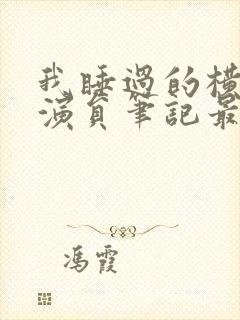 我睡過的橫
演員筆記最
馮霞